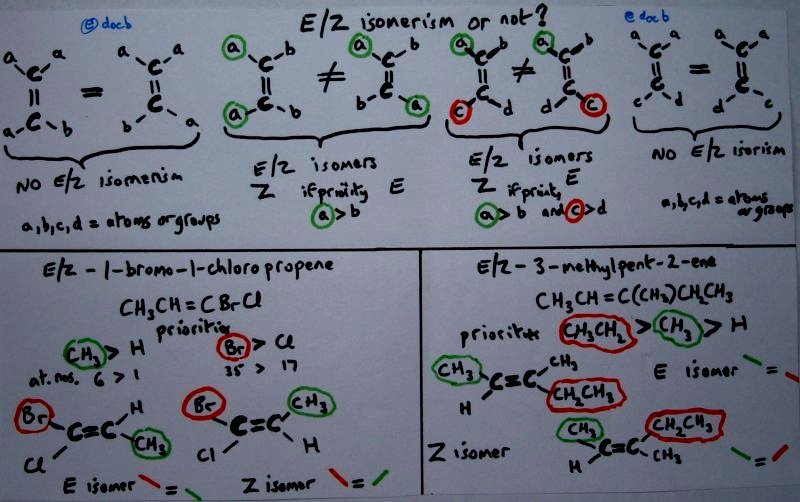 © docb
E/Z isomerism or not?
© docb
a a a a
C C
= =
C C
a b b a
NO E/Z isomerism
a,b,c,d = atoms or groups
a b a b
C ≠ C
C C
a b b a
E/Z isomers
Z if priority E
a > b
a b a b
C ≠ C
C C
c d d c
E/Z isomers
Z if priority E
a > b and c > d
a a a a
C = C
C C
c d d c
NO E/Z isorism
a,b,c,d = atoms
or groups
E/Z - 1-bromo-1-chloropropene
CH3CH = CBrCl
priorities
CH3 > H Br > Cl
at. nos. 6 > 1 35 > 17
Br H
C=C
Cl CH3
Br CH3
C=C
Cl H
E isomer \ = \ Z isomer \ = /
E/Z - 3-methylpent-2-ene
CH3CH = C(CH3)CH2CH3
priorities CH3CH2 > CH3 > H
CH3 CH3
C=C
H CH2CH3
E isomer \ = \
Z isomer
CH3 CH2CH3
C=C
H CH3
\ = /